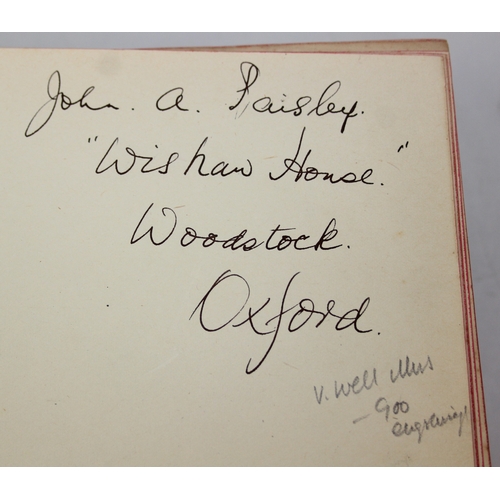 John. A. Paisley.
"Wishaw House."
Woodstock.
Oxford.
V. Well Illus
- 900
engravings